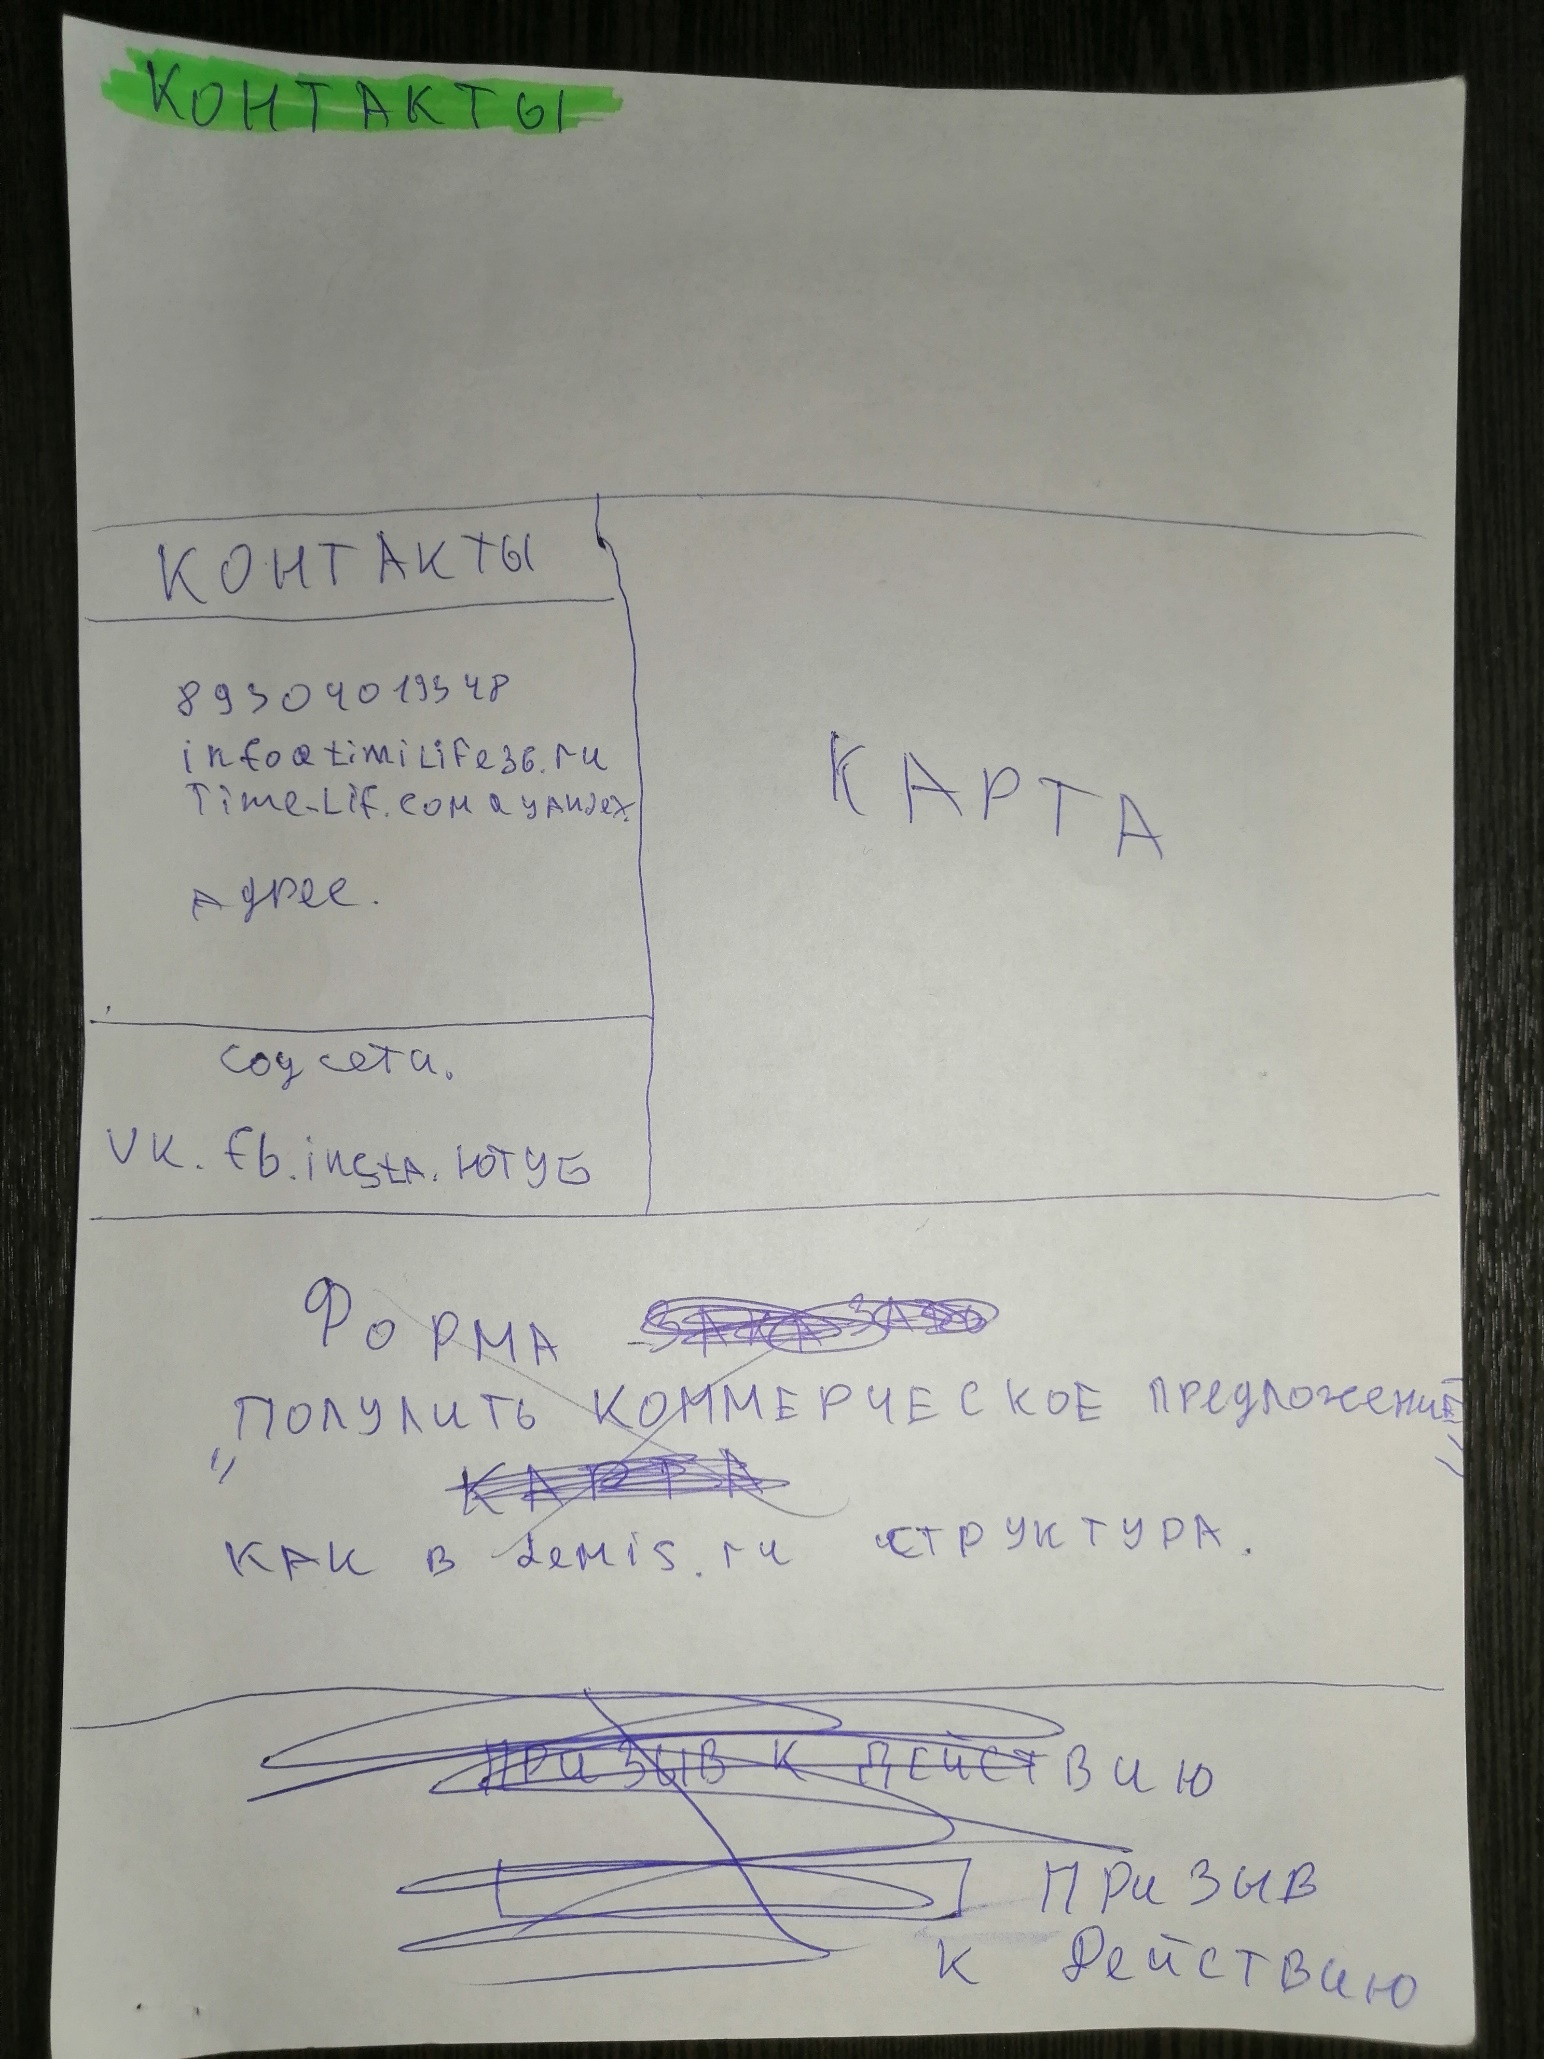 КОНТАКТЫ
КОНТАКТЫ
89304019348
info@timiLife36.ru
Time-Lif.com@yandex.
Адрес.
КАРТА
соц сети.
VK. fb. insta. ЮТУБ
ФОРМА ЗАКАЗАТЬ
"ПОЛУЧИТЬ КОММЕРЧЕСКОЕ ПРЕДЛОЖЕНИЕ"
КАРТА
КАК В demis.ru СТРУКТУРА.
ПРИЗЫВ К ДЕЙСТВИЮ
ПРИЗЫВ
К ДЕЙСТВИЮ